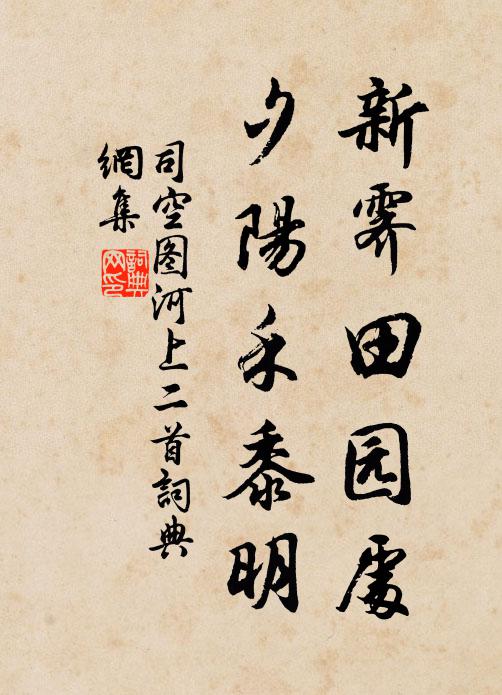 新霽田园處
夕陽禾黍明
司空图河上二首詞典
網集
詞典
网印